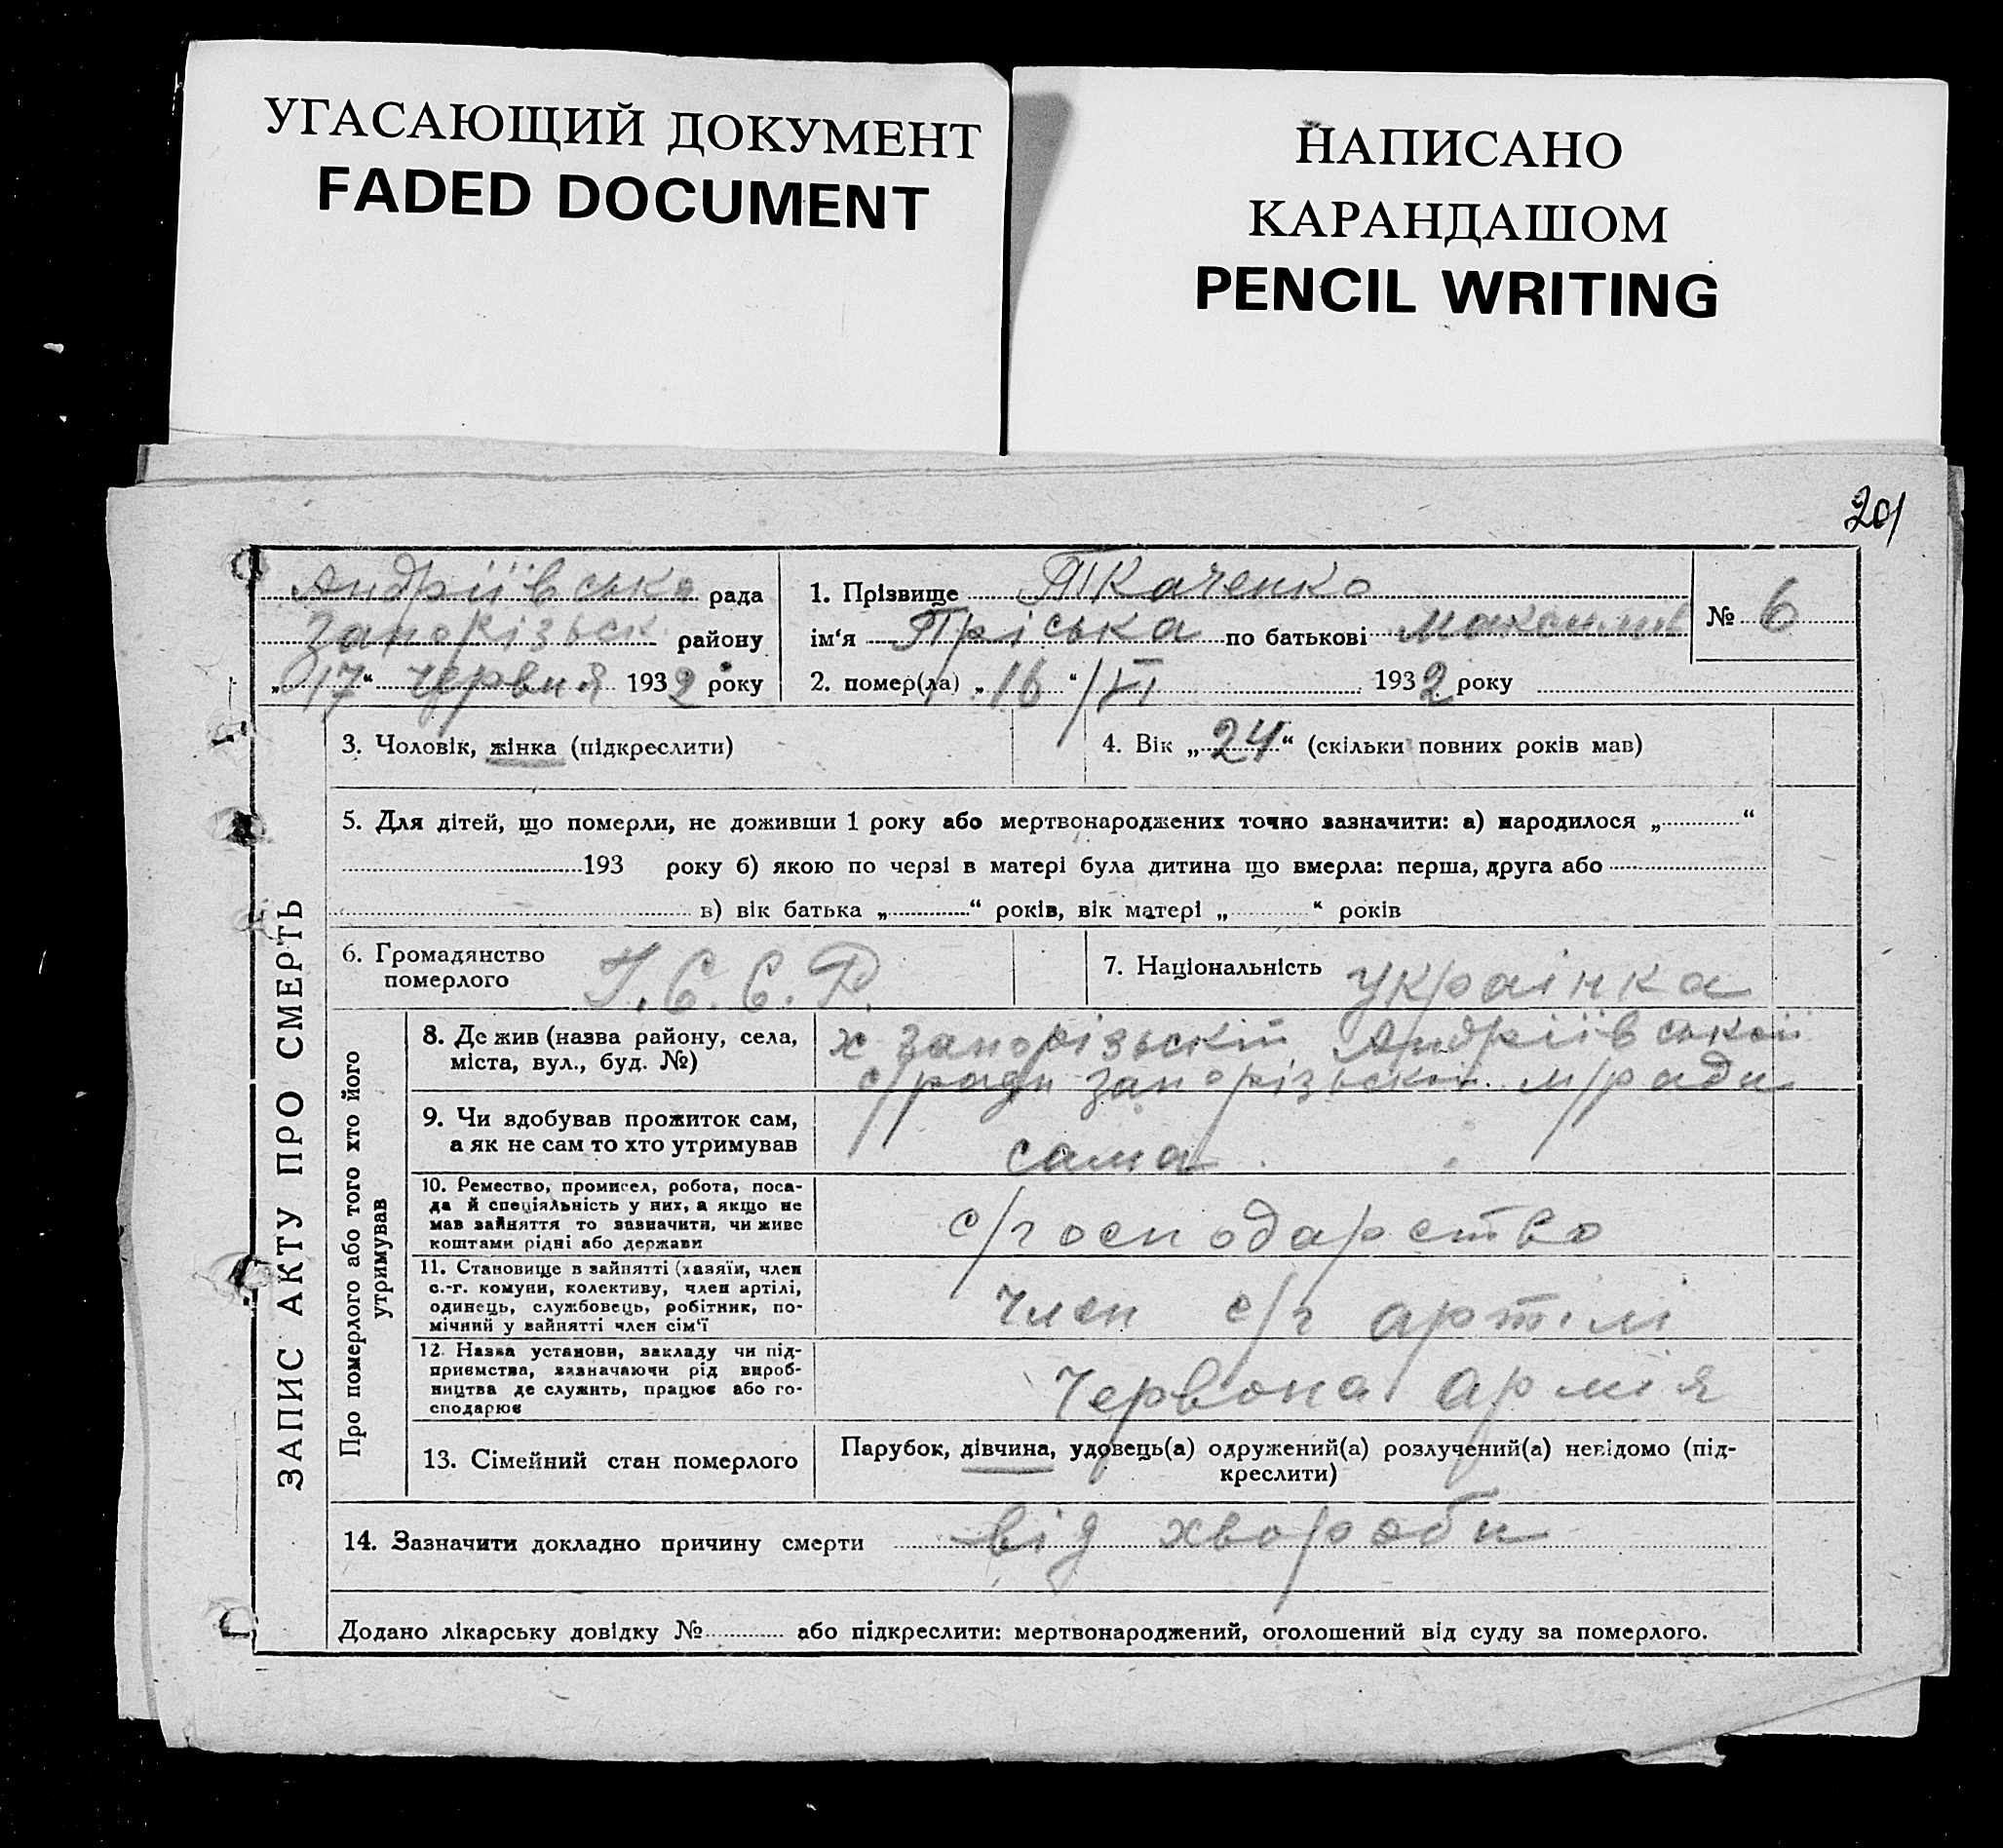 УГАСАЮЩИЙ ДОКУМЕНТ
FADED DOCUMENT
НАПИСАНО
КАРАНДАШОМ
PENCIL WRITING
201
Андріївсько рада
Запорізьк району
„17“ червня 1932 року
1. Прізвище Ткаченко
ім‘я Пріська по батькові Максимів
2. помер(ла) „16“/VI 1932 року
№ 6
3. Чоловік, жінка (підкреслити)
4. Вік „24“ (скільки повних років мав)
5. Для дітей, що померли, не доживши 1 року або мертвонароджених точно зазначити: а) народилося „ “
193 року б) якою по черзі в матері була дитина що вмерла: перша, друга або
в) вік батька „ “ років, вік матері „ “ років
6. Громадянство
померлого
У.С.С.Р.
7. Національність українка
ЗАПИС АКТУ ПРО СМЕРТЬ
Про померлого або того хто його
утримував
8. Де жив (назва району, села,
міста, вул., буд. №)
х Запорізькій Андріївськоі
с/ради Запорізькоі м/ради
9. Чи здобував прожиток сам,
а як не сам то хто утримував
сама
10. Ремество, промисел, робота, поса-
да й спеціяльність у них, а якщо не
мав зайняття то зазначити, чи живе
коштами рідні або держави
с/господарство
11. Становище в зайнятті (хазяїн, член
с.-г. комуни, колективу, член артілі,
одинець, службовець, робітник, по-
мічний у зайнятті член сім‘ї
член с/г артілі
12. Назва установи, закладу чи під-
приємства, зазначаючи рід вироб-
ництва де служить, працює або го-
сподарює
Червона Армія
13. Сімейний стан померлого
Парубок, дівчина, удовець(а) одружений(а) розлучений(а) невідомо (під-
креслити)
14. Зазначити докладно причину смерти від хвороби
Додано лікарську довідку № або підкреслити: мертвонароджений, оголошений від суду за померлого.